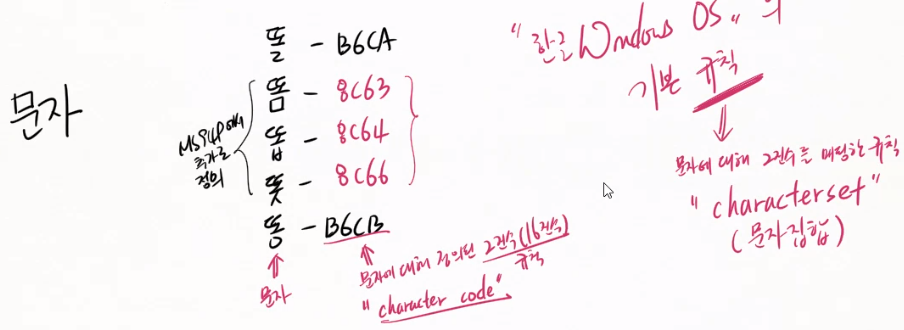 문자
똘 - B6CA
똠 - 8C63
똡 - 8C64
똣 - 8C66
똥 - B6CB
MS949에서
추가로
정의
문자
문자에 대해 정의된 2진수(16진수)
규칙
"character code"
"한글 Windows OS" 의
기본 규칙
문자에 대해 2진수를 매핑한 규칙
"characterset"
(문자집합)